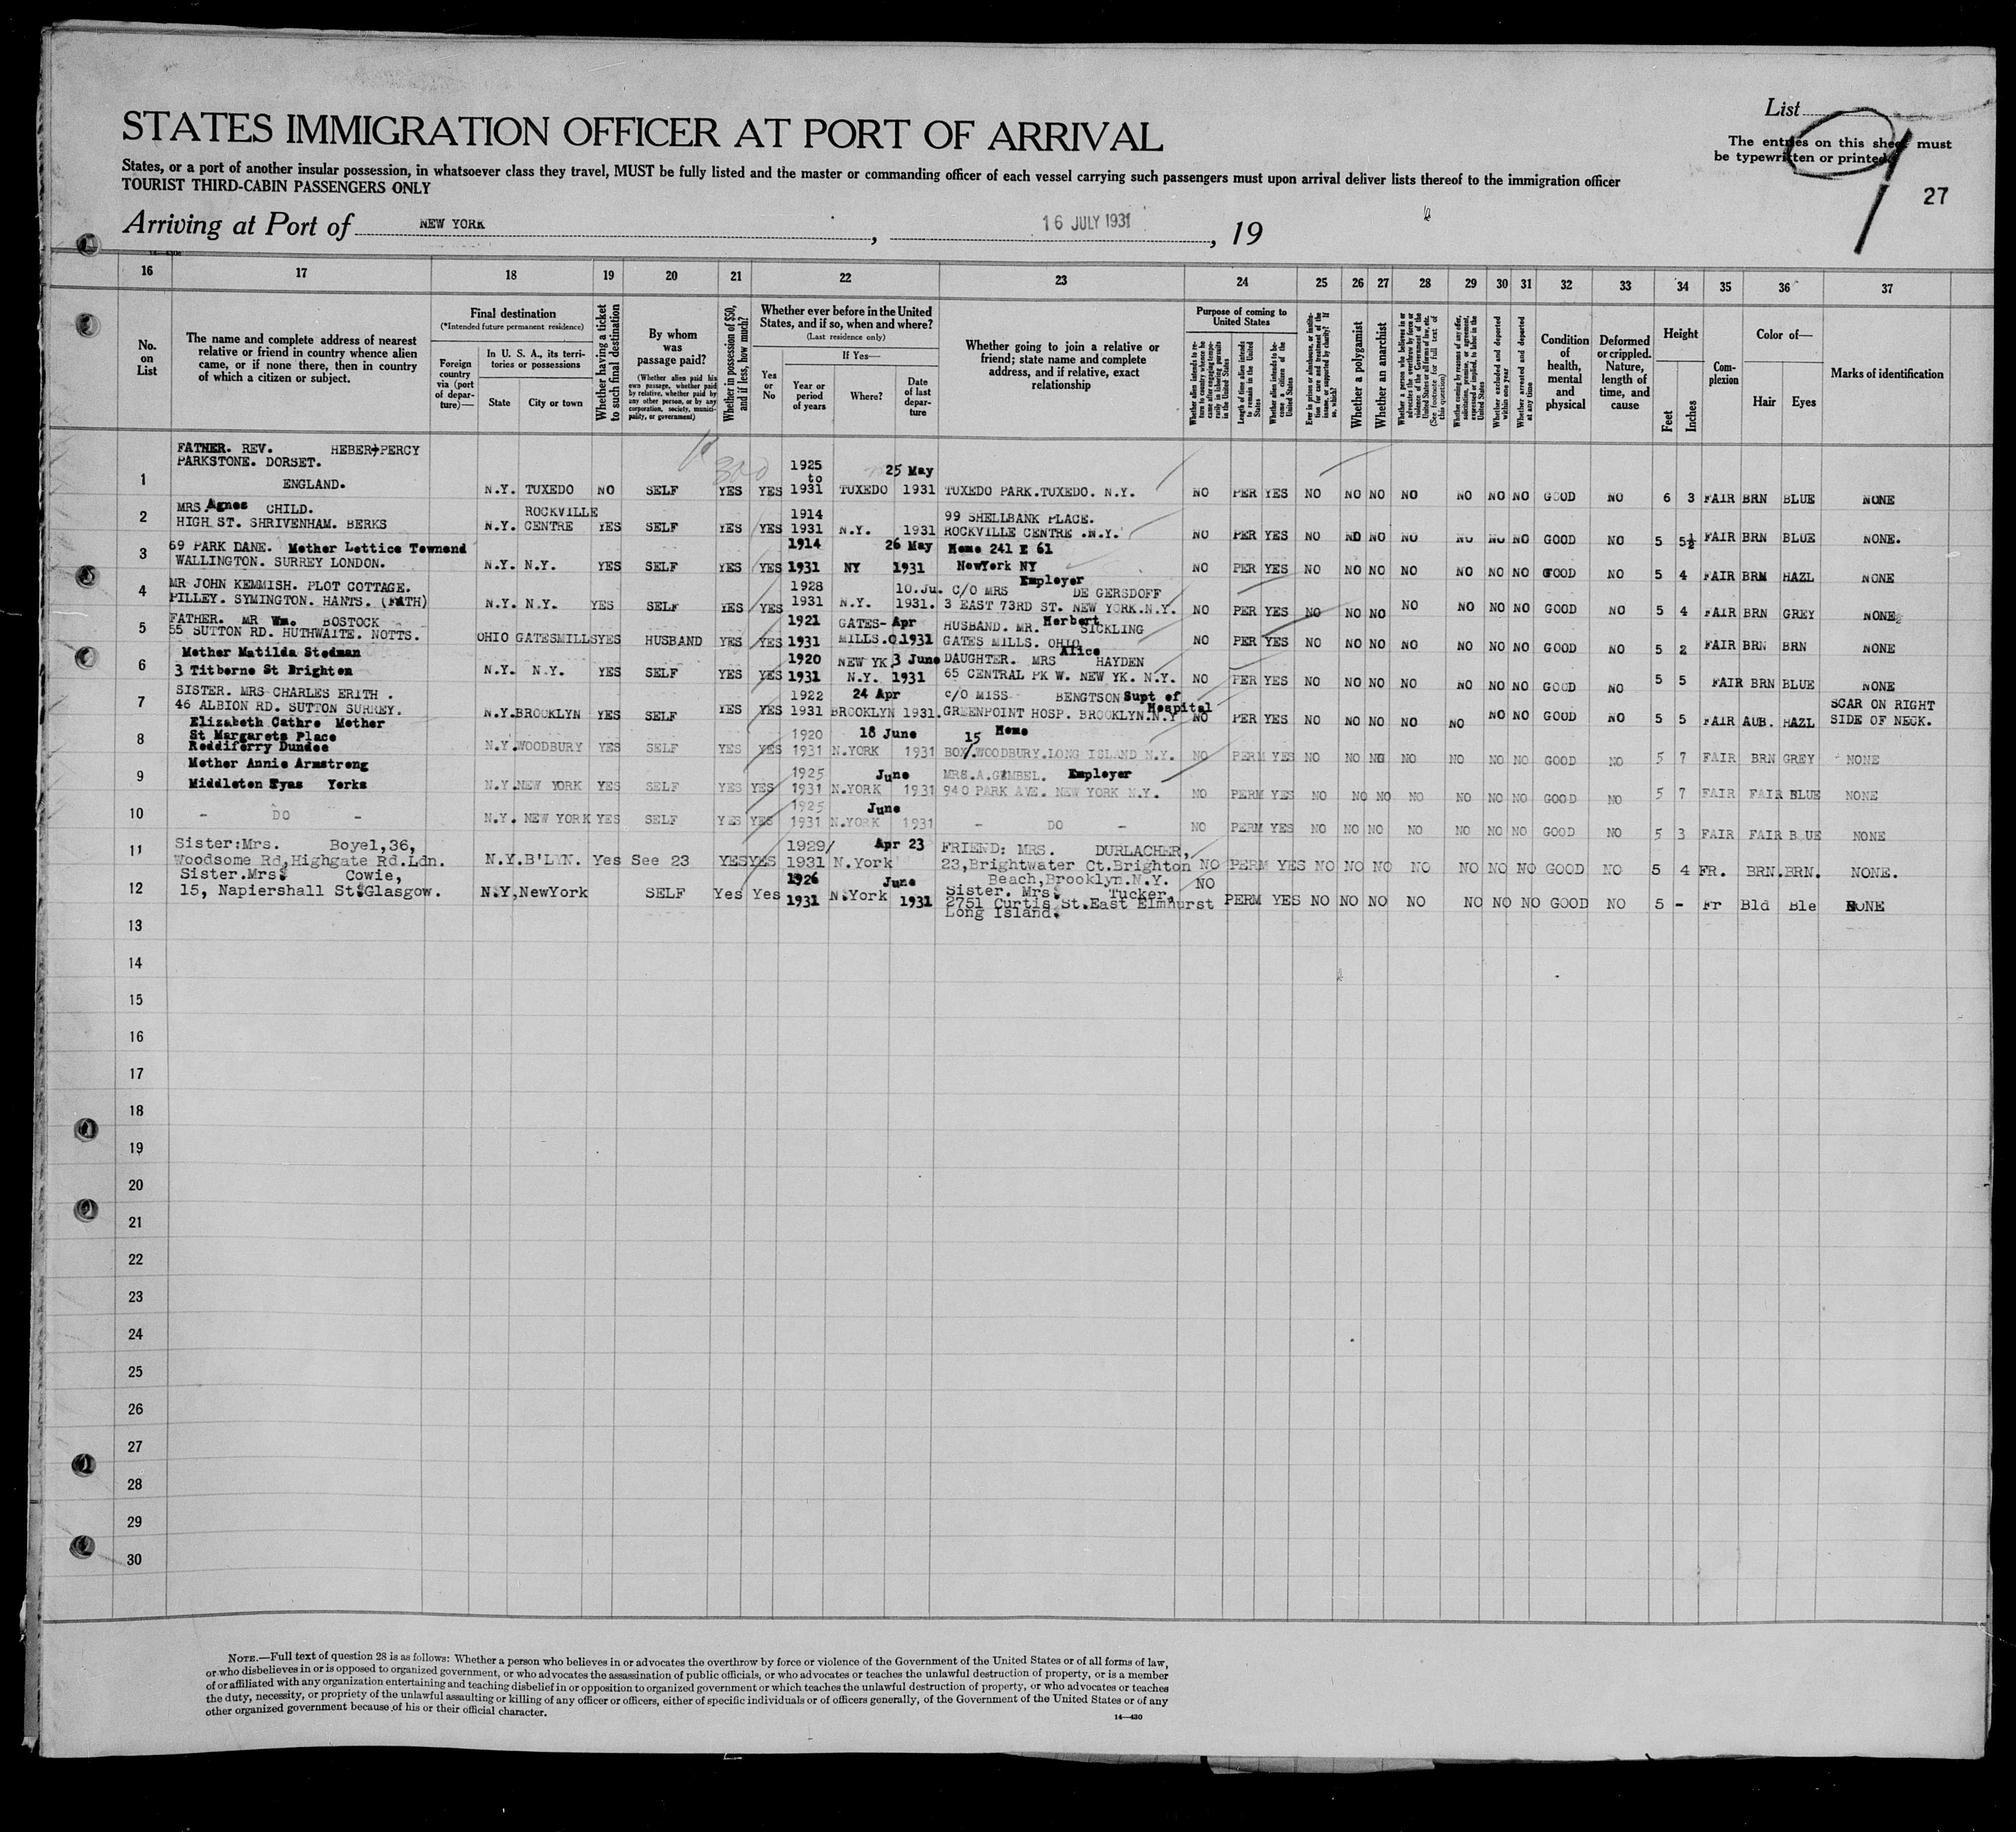 List
The entries on this sheet must
be typewritten or printed
27
STATES IMMIGRATION OFFICER AT PORT OF ARRIVAL
States, or a port of another insular possession, in whatsoever class they travel, MUST be fully listed and the master or commanding officer of each vessel carrying such passengers must upon arrival deliver lists thereof to the immigration officer
TOURIST THIRD-CABIN PASSENGERS ONLY
Arriving at Port of NEW YORK, 16 JULY 1931, 19
16 17 18 19 20 21 22 23 24 25 26 27 28 29 30 31 32 33 34 35 36 37
No. on List
The name and complete address of nearest
relative or friend in country whence alien
came, or if none there, then in country
of which a citizen or subject.
Final destination
(*Intended future permanent residence)
Foreign country via (port of departure)—
In U. S. A., its territories or possessions
State City or town
Whether having a ticket to such final destination
By whom was passage paid?
(Whether alien paid his own passage, whether paid by relative, whether paid by any other person, or by any corporation, society, municipality, or government)
Whether in possession of $50, and if less, how much?
Whether ever before in the United
States, and if so, when and where?
(Last residence only)
Yes or No
If Yes—
Year or period of years
Where?
Date of last departure
Whether going to join a relative or
friend; state name and complete
address, and if relative, exact
relationship
Purpose of coming to United States
Whether alien intends to return to country whence he came after engaging temporarily in laboring pursuits in the United States
Length of time alien intends to remain in the United States
Whether alien intends to become a citizen of the United States
Ever in prison or almshouse, or institution for care and treatment of the insane, or supported by charity? If so, which?
Whether a polygamist
Whether an anarchist
Whether a person who believes in or advocates the overthrow by force or violence of the Government of the United States or all forms of law, etc. (See footnote for full text of this question)
Whether coming by reasons of any offer, solicitation, promise, or agreement, expressed or implied, to labor in the United States
Whether excluded and deported within one year
Whether arrested and deported at any time
Condition of health, mental and physical
Deformed or crippled. Nature, length of time, and cause
Height
Feet Inches
Complexion
Color of—
Hair Eyes
Marks of identification
1 FATHER. REV. HEBER-PERCY
PARKSTONE. DORSET.
ENGLAND. N.Y. TUXEDO NO SELF YES YES 1925 to 1931 TUXEDO 25 May 1931 TUXEDO PARK.TUXEDO. N.Y. NO PER YES NO NO NO NO NO NO NO GOOD NO 6 3 FAIR BRN BLUE NONE
2 MRS Agnes CHILD.
HIGH ST. SHRIVENHAM. BERKS N.Y. ROCKVILLE CENTRE YES SELF YES YES 1914 1931 N.Y. 1931 99 SHELLBANK PLACE.
ROCKVILLE CENTRE .N.Y. NO PER YES NO NO NO NO NO NO NO GOOD NO 5 5½ FAIR BRN BLUE NONE.
3 69 PARK DANE. Mother Lettice Townend
WALLINGTON. SURREY LONDON. N.Y. N.Y. YES SELF YES YES 1914 1931 NY 26 May 1931 Home 241 E 61
NewYork NY NO PER YES NO NO NO NO NO NO NO GOOD NO 5 4 FAIR BRN HAZL NONE
4 MR JOHN KEMMISH. PLOT COTTAGE.
PILLEY. SYMINGTON. HANTS. (FATH) N.Y. N.Y. YES SELF YES YES 1928 1931 N.Y. 10.Ju. 1931. C/O MRS Employer DE GERSDOFF
3 EAST 73RD ST. NEW YORK.N.Y. NO PER YES NO NO NO NO NO NO NO GOOD NO 5 4 FAIR BRN GREY NONE
5 FATHER. MR Wm. BOSTOCK
55 SUTTON RD. HUTHWAITE. NOTTS. OHIO GATESMILLS YES HUSBAND YES YES 1921 1931 GATES-MILLS.O. Apr 1931 HUSBAND. MR. Herbert SICKLING
GATES MILLS. OHIO NO PER YES NO NO NO NO NO NO NO GOOD NO 5 2 FAIR BRN BRN NONE
6 Mother Matilda Stedman
3 Titborne St Brighton N.Y. N.Y. YES SELF YES YES 1920 1931 NEW YK. N.Y. 3 June 1931 DAUGHTER. MRS Alice HAYDEN
65 CENTRAL PK W. NEW YK. N.Y. NO PER YES NO NO NO NO NO NO NO GOOD NO 5 5 FAIR BRN BLUE NONE
7 SISTER. MRS CHARLES ERITH .
46 ALBION RD. SUTTON SURREY. N.Y. BROOKLYN YES SELF YES YES 1922 1931 BROOKLYN 24 Apr 1931. C/O MISS BENGTSON Supt of Hospital
GREENPOINT HOSP. BROOKLYN.N.Y NO PER YES NO NO NO NO NO NO NO GOOD NO 5 5 FAIR AUB. HAZL SCAR ON RIGHT SIDE OF NECK.
8 Elizabeth Cathro Mother
St Margarets Place
Reddiferry Dundee N.Y. WOODBURY YES SELF YES YES 1920 1931 N.YORK 18 June 1931 15 Home
BOX.WOODBURY.LONG ISLAND N.Y. NO PERM YES NO NO NO NO NO NO NO GOOD NO 5 7 FAIR BRN GREY NONE
9 Mother Annie Armstrong
Middleton Tyas Yorks N.Y. NEW YORK YES SELF YES YES 1925 1931 N.YORK June 1931 MRS.A.GIMBEL. Employer
940 PARK AVE. NEW YORK N.Y. NO PERM YES NO NO NO NO NO NO NO GOOD NO 5 7 FAIR FAIR BLUE NONE
10 - DO - N.Y. NEW YORK YES SELF YES YES 1925 1931 N.YORK June 1931 - DO - NO PERM YES NO NO NO NO NO NO NO GOOD NO 5 3 FAIR FAIR BLUE NONE
11 Sister:Mrs. Boyel,36,
Woodsome Rd,Highgate Rd.Ldn. N.Y. B'LYN. Yes See 23 YES YES 1929/ 1931 N.York Apr 23 FRIEND: MRS. DURLACHER,
23,Brightwater Ct.Brighton
Beach,Brooklyn.N.Y. NO PERM YES NO NO NO NO NO NO NO GOOD NO 5 4 FR. BRN. BRN. NONE.
12 Sister.Mrs. Cowie,
15, Napiershall St.Glasgow. N.Y, NewYork SELF Yes Yes 1926 1931 N.York June 1931 Sister. Mrs. Tucker,
2751 Curtis St.East Elmhurst
Long Island. NO PERM YES NO NO NO NO NO NO NO GOOD NO 5 - Fr Bld Ble NONE
13
14
15
16
17
18
19
20
21
22
23
24
25
26
27
28
29
30
NOTE.—Full text of question 28 is as follows: Whether a person who believes in or advocates the overthrow by force or violence of the Government of the United States or of all forms of law,
or who disbelieves in or is opposed to organized government, or who advocates the assassination of public officials, or who advocates or teaches the unlawful destruction of property, or is a member
of or affiliated with any organization entertaining and teaching disbelief in or opposition to organized government or which teaches the unlawful destruction of property, or who advocates or teaches
the duty, necessity, or propriety of the unlawful assaulting or killing of any officer or officers, either of specific individuals or of officers generally, of the Government of the United States or of any
other organized government because of his or their official character.
14—430